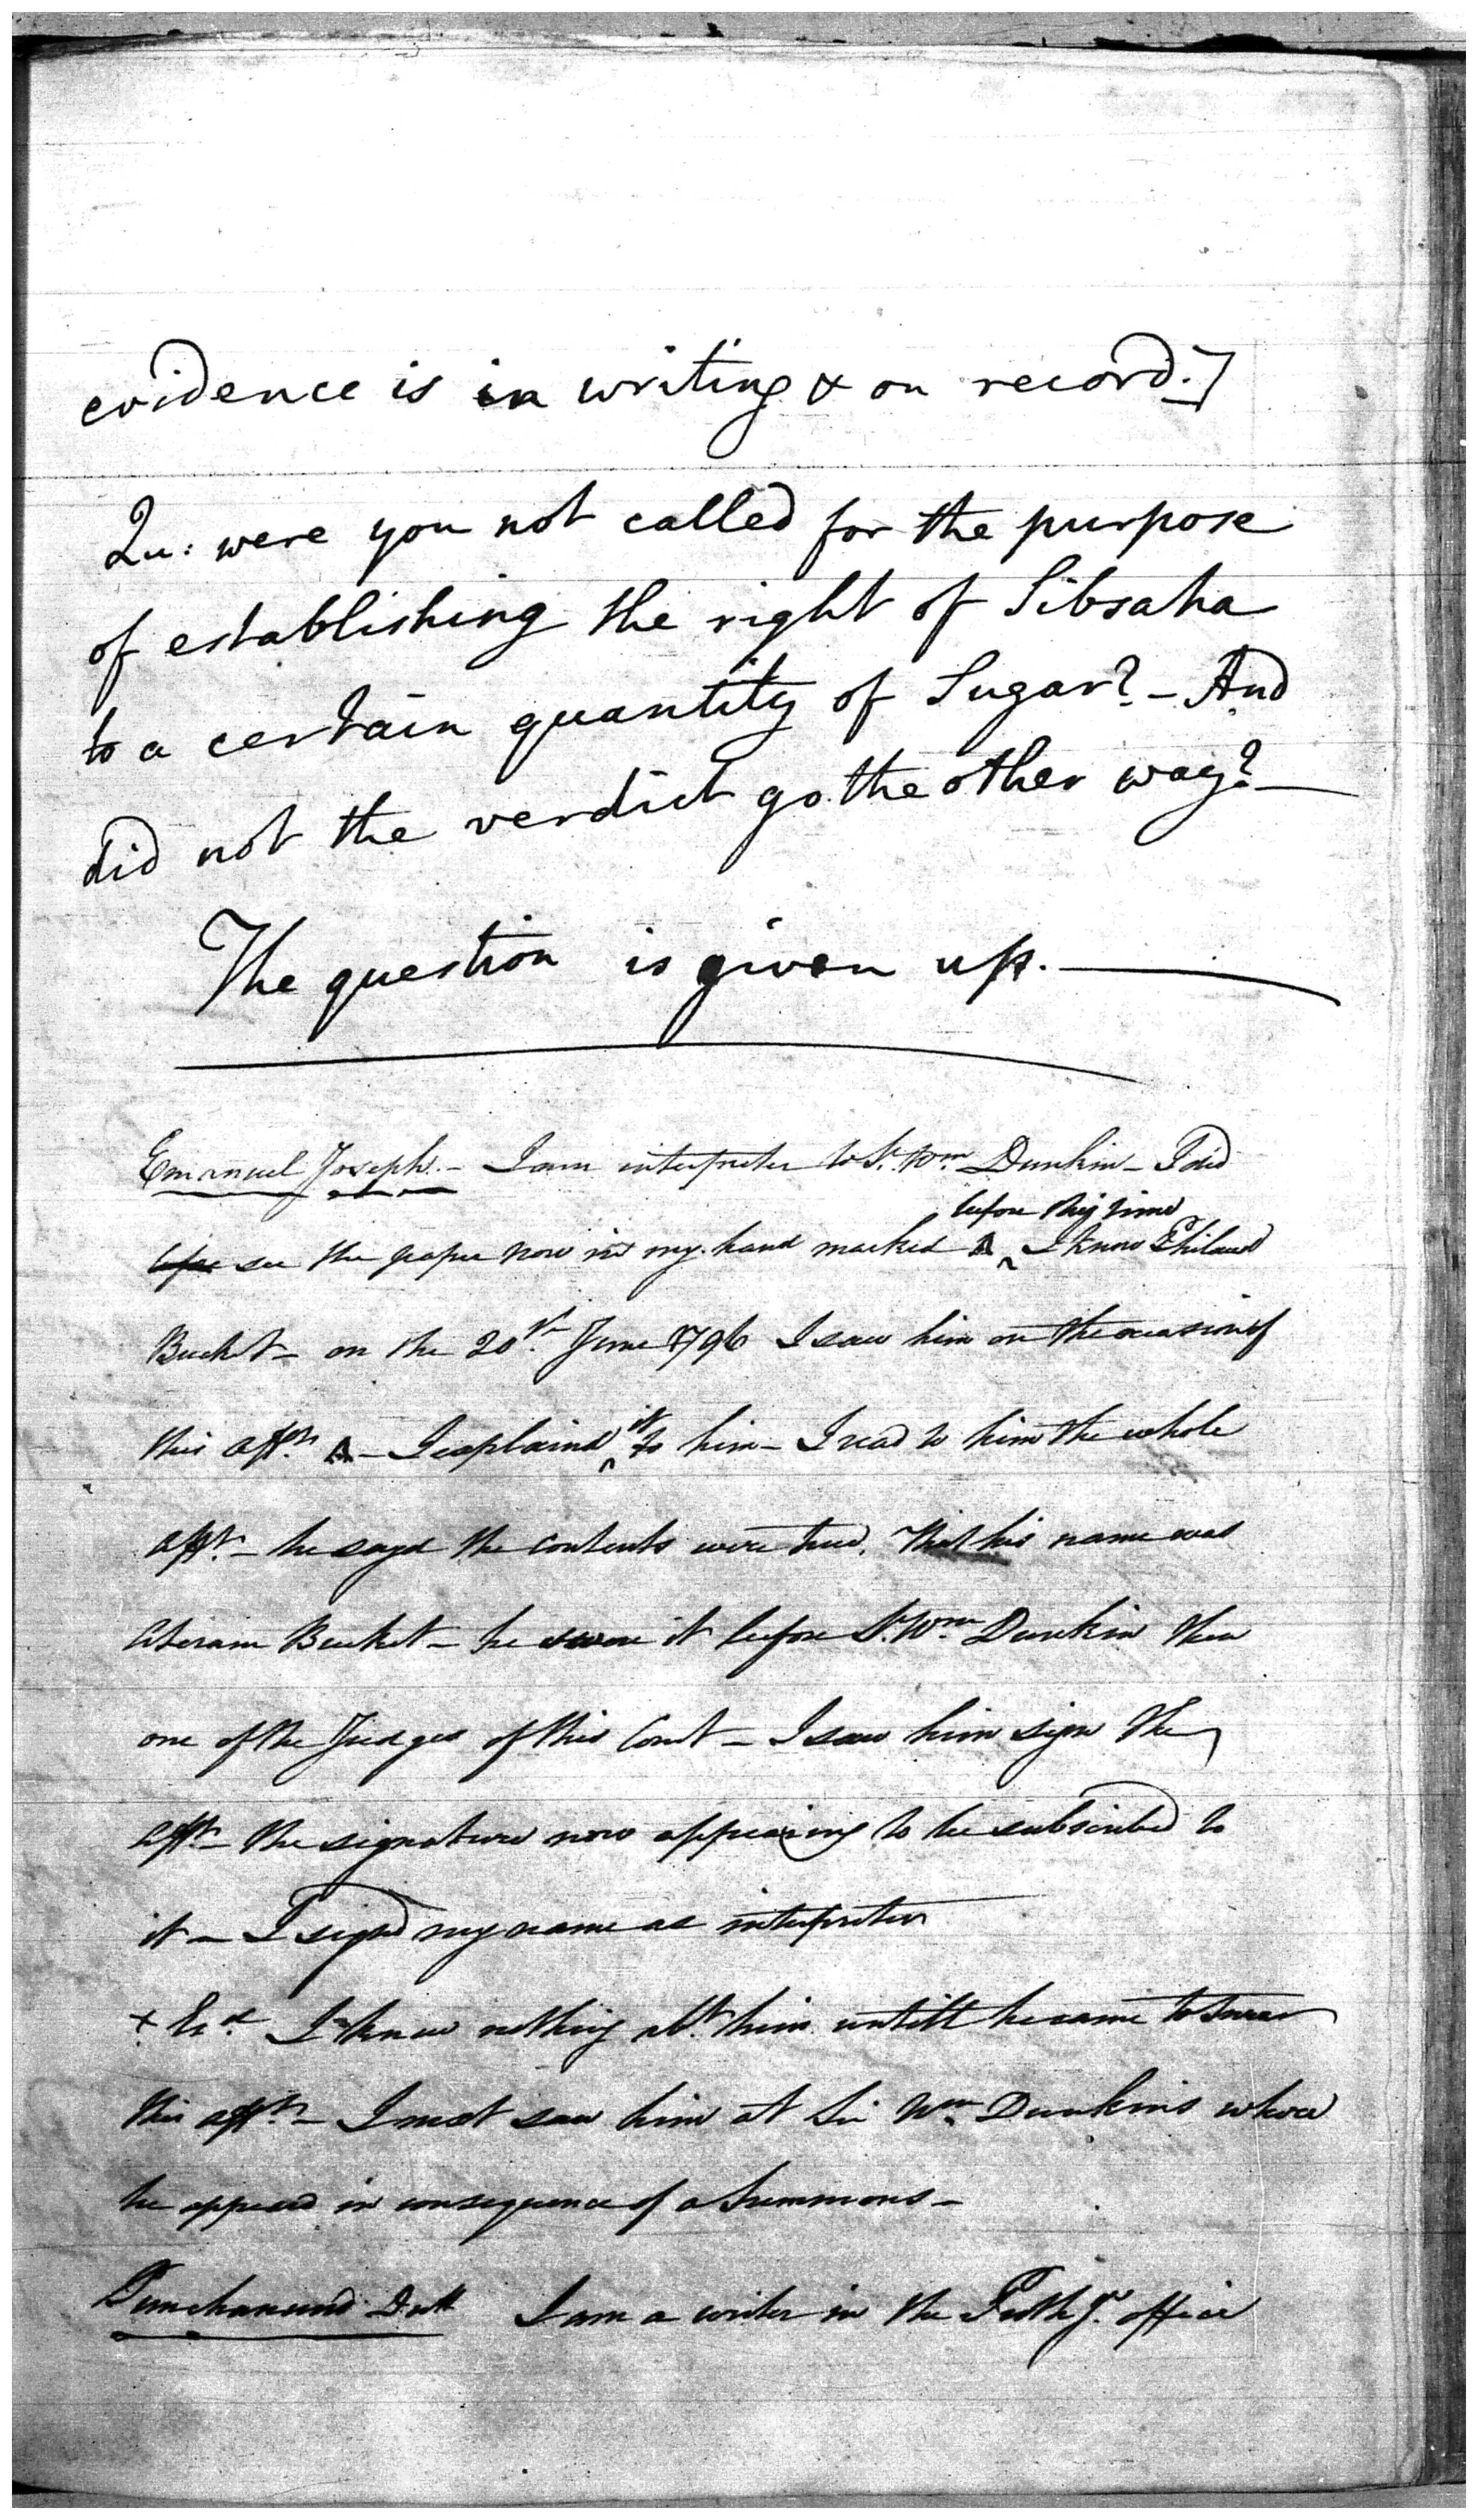 evidence is in writing & on record.]
Qu: were you not called for the purpose
of establishing the right of Sibsaha
to a certain quantity of Sugar? - And
did not the verdict go the other way? —
The question is given up. —
Emanuel Joseph. - I am interpreter to Sr. Wm. Dunkin - I did
before this time
see the paper now in my hand marked A I know
Bucket - on the 20th. June 1796 I saw him on the occasion of
it
this afft. A - I explaind to him - I read to him the whole
afft. - he sayd the contents were true. That his name was
Bucket - he swore it before Sr. Wm. Dunkin then
one of the Judges of this Court - I saw him sign the
afft - the signature now appearing to be subscribed to
it - I signd my name as interpreter
+ Exd. I knew nothing abt. him untill he came to swear
this afft. - I saw him at Sir Wm. Dunkins where
he appeard in consequence of a Summons -
Punchanund Dutt I am a writer in the office